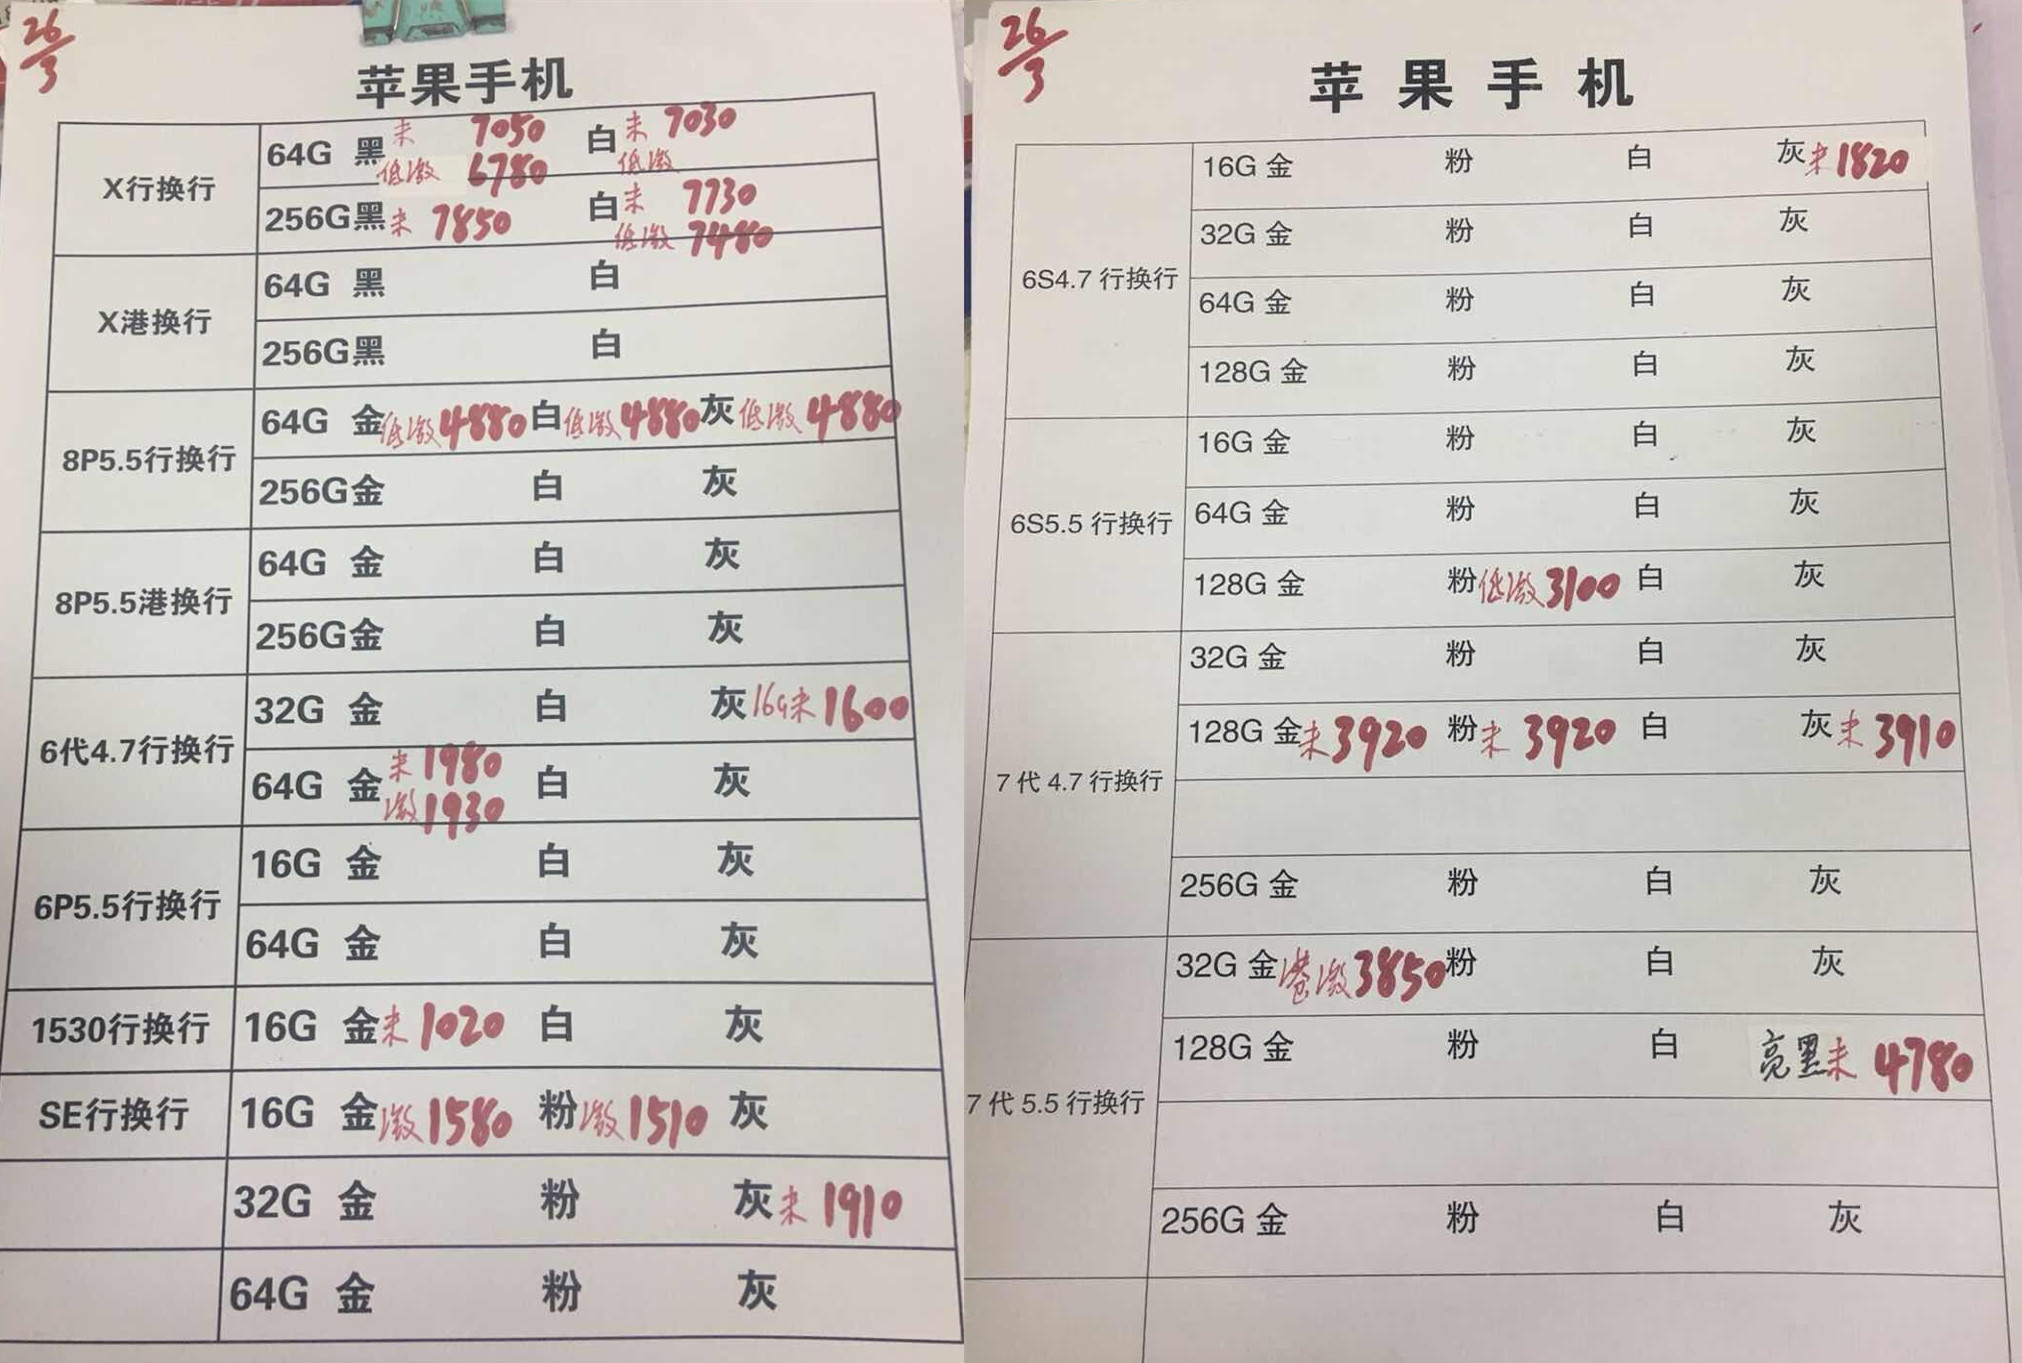 26/3
苹果手机
X行换行
64G 黑 未 7050 白 未 7030
低激 6780 低激
256G黑 未 7850 白 未 7730
低激 7480
X港换行
64G 黑 白
256G黑 白
8P5.5行换行
64G 金 低激 4880 白 低激 4880 灰 低激 4880
256G金 白 灰
8P5.5港换行
64G 金 白 灰
256G金 白 灰
6代4.7行换行
32G 金 白 灰 16G未 1600
64G 金 未 1980 白 灰
激 1930
6P5.5行换行
16G 金 白 灰
64G 金 白 灰
1530行换行
16G 金 未 1020 白 灰
SE行换行
16G 金 激 1580 粉 激 1510 灰
32G 金 粉 灰 未 1910
64G 金 粉 灰
26/3
苹果手机
6S4.7 行换行
16G 金 粉 白 灰 未 1820
32G 金 粉 白 灰
64G 金 粉 白 灰
128G 金 粉 白 灰
6S5.5 行换行
16G 金 粉 白 灰
64G 金 粉 白 灰
128G 金 粉 低激 3100 白 灰
7 代 4.7 行换行
32G 金 粉 白 灰
128G 金 未 3920 粉 未 3920 白 灰 未 3910
256G 金 粉 白 灰
7 代 5.5 行换行
32G 金 港激 3850 粉 白 灰
128G 金 粉 白 亮黑 未 4780
256G 金 粉 白 灰